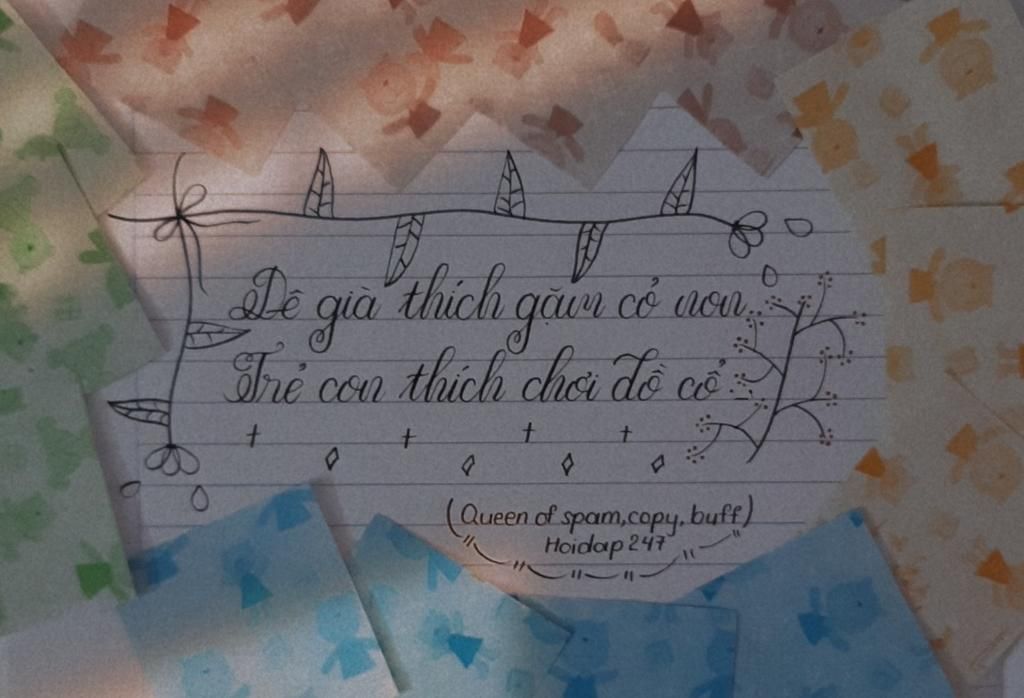 Dê già thích gặm cỏ non..
Trẻ con thích chơi đồ cổ...
(Queen of spam,copy, buff)
Hoidap 247